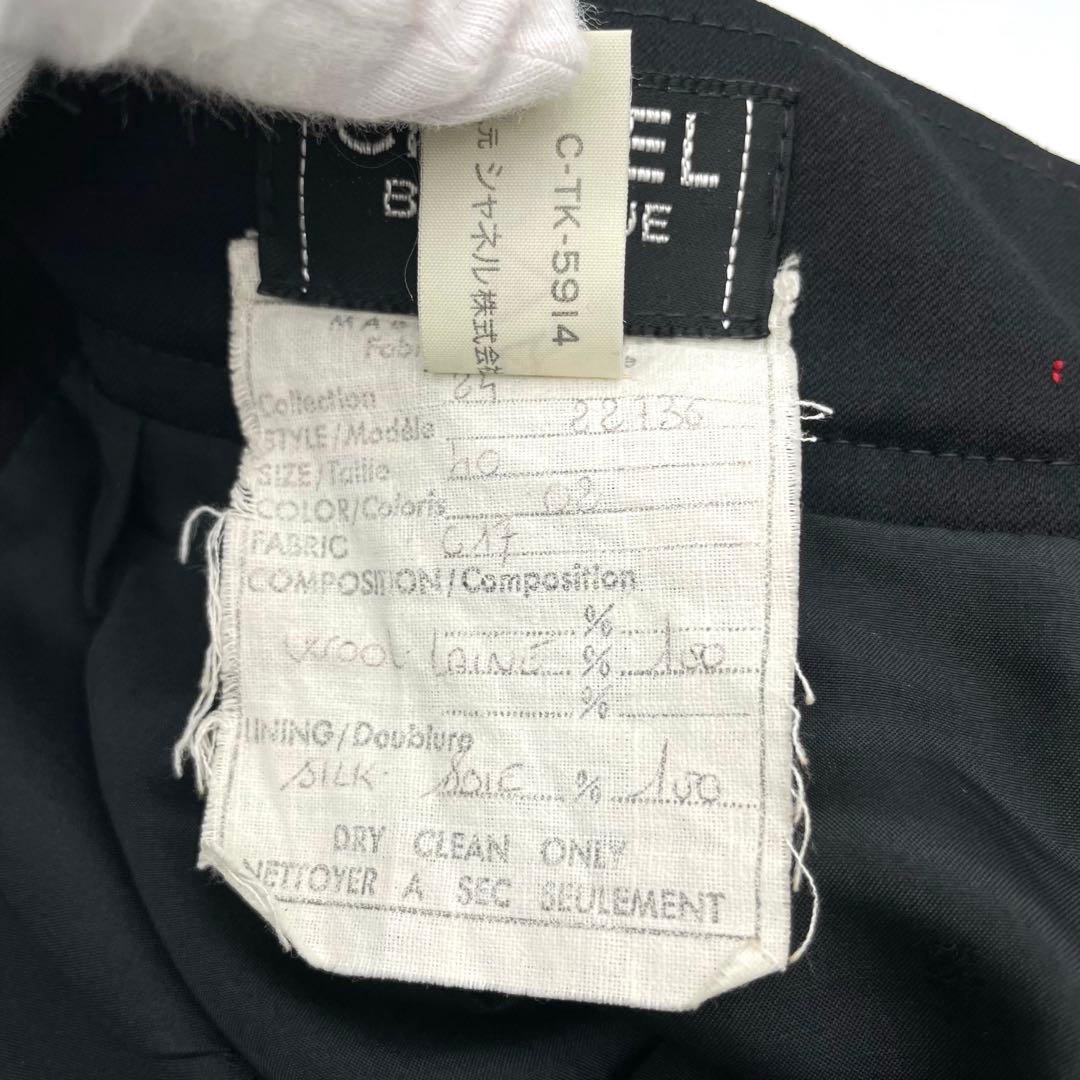 EL
B UE
C-TK-5914
元 シャネル株式会社
MA
Fabri
Collection 25
STYLE/Modèle 22136
SIZE/Taille 40
COLOR/Coloris 02
FABRIC 017
COMPOSITION/Composition
%
WOOL LAINE % 100
%
LINING/Doublure
SILK SOIE % 100
DRY CLEAN ONLY
NETTOYER A SEC SEULEMENT